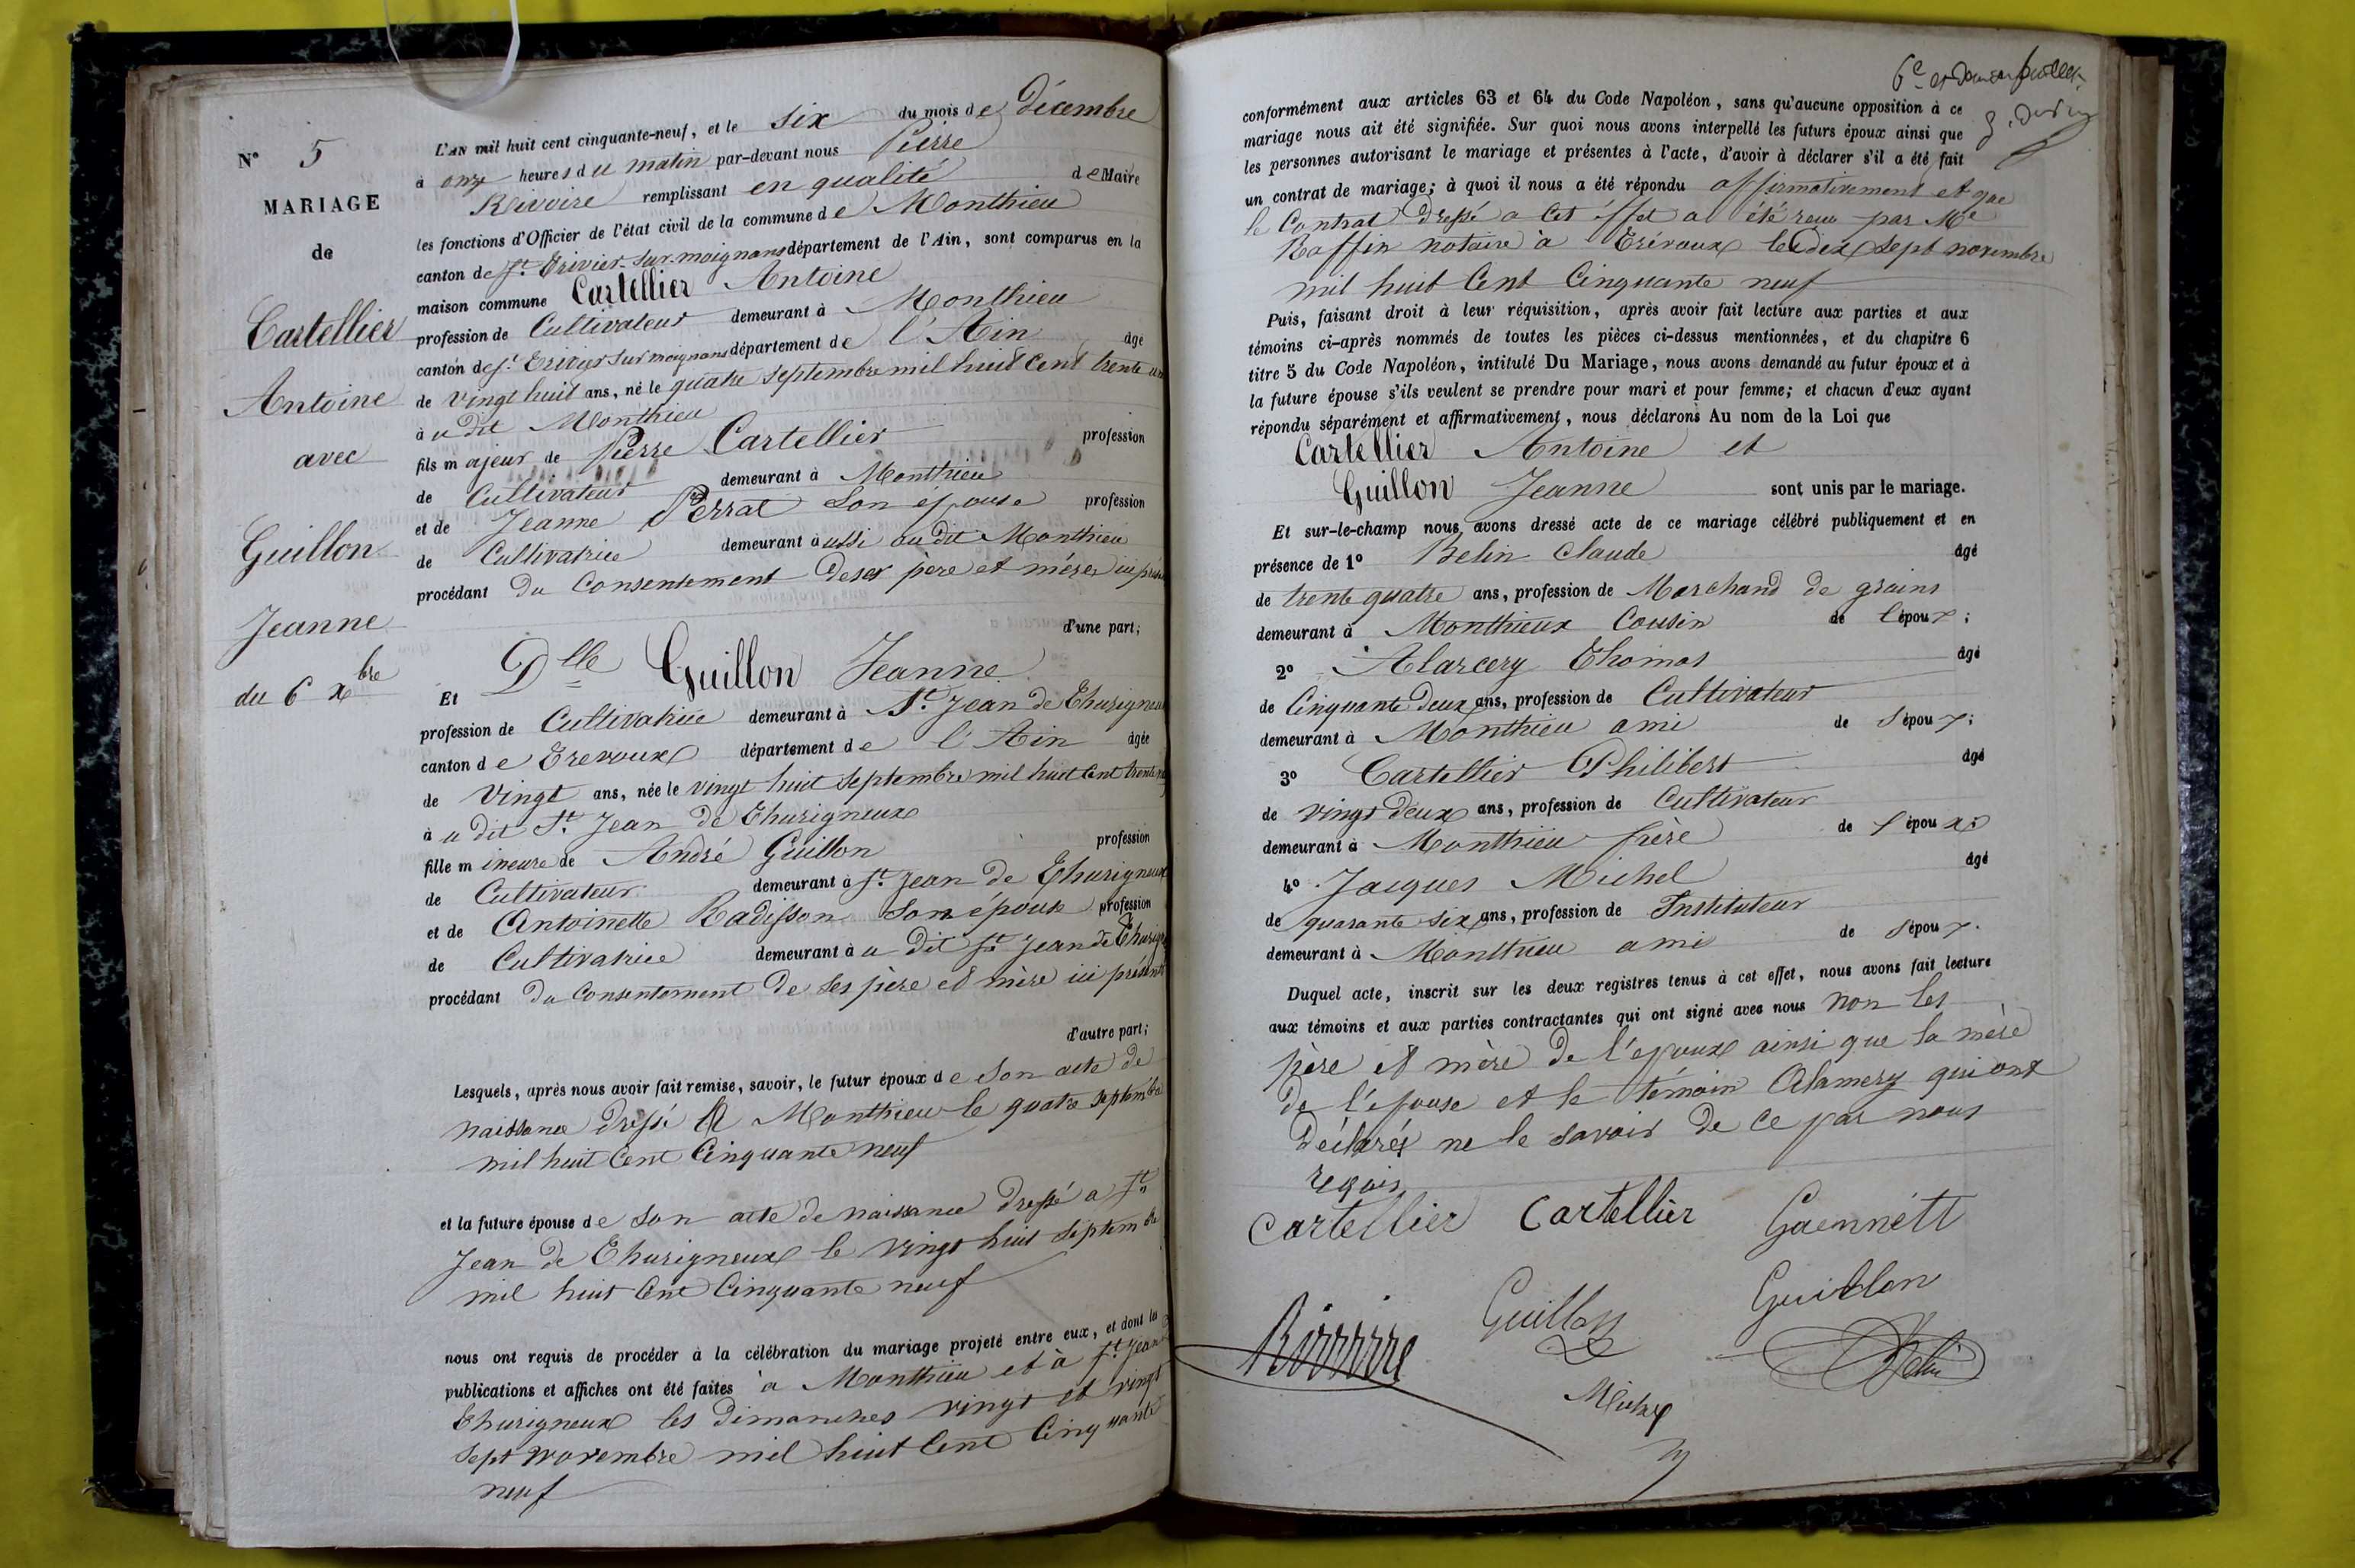 N° 5
MARIAGE
de
Cartellier
Antoine
avec
Guillon
Jeanne
du 6 xbre
L'AN mil huit cent cinquante-neuf, et le six du mois de Décembre
à onze heures du matin par-devant nous Pierre
Rivoire remplissant en qualité de Maire
les fonctions d'Officier de l'état civil de la commune de Monthieu
canton de St. Trivier-sur-moignans département de l'Ain, sont comparus en la
maison commune Cartellier Antoine
profession de Cultivateur demeurant à Monthieu
canton de St. Trivier sur moignans département de l'Ain âgé
de vingt huit ans, né le quatre septembre mil huit cent trente un
à u dit Monthieu
fils majeur de Pierre Cartellier profession
de Cultivateur demeurant à Monthieu
et de Jeanne Perrat son épouse profession
de Cultivatrice demeurant aussi au dit Monthieu
procédant du Consentement de ses père et mères ici
d'une part;
Et Dlle Guillon Jeanne
profession de Cultivatrice demeurant à St. Jean de Thurigneux
canton de Trevoux département de l'Ain âgée
de Vingt ans, née le vingt huit septembre mil huit cent trente
à u dit St. Jean de Thurigneux
fille mineure de André Guillon profession
de Cultivateur demeurant à St. Jean de Thurigneux
et de Antoinette Radisson son épouse profession
de Cultivatrice demeurant à u dit St. Jean de
procédant du Consentement de ses père et mère ici présents
d'autre part;
Lesquels, après nous avoir fait remise, savoir, le futur époux de son acte de
naissance dressé a Monthieu le quatre septembre
mil huit Cent Cinquante neuf
et la future épouse de son acte de naissance dressé a St.
Jean de Thurigneux le vingt huit septembre
mil huit Cent Cinquante neuf
nous ont requis de procéder à la célébration du mariage projeté entre eux, et dont les
publications et affiches ont été faites à Monthieu et à St. Jean
Thurigneux les Dimanches vingt et vingt
sept novembre mil huit Cent Cinquante
neuf
6e et
conformément aux articles 63 et 64 du Code Napoléon, sans qu'aucune opposition à ce
mariage nous ait été signifiée. Sur quoi nous avons interpellé les futurs époux ainsi que
les personnes autorisant le mariage et présentes à l'acte, d'avoir à déclarer s'il a été fait
un contrat de mariage; à quoi il nous a été répondu affirmativement et que
le Contrat dressé a cet éffet a été reçu par Me
Raffin notaire à Trévoux le dix sept novembre
mil huit Cent Cinquante neuf
Puis, faisant droit à leur réquisition, après avoir fait lecture aux parties et aux
témoins ci-après nommés de toutes les pièces ci-dessus mentionnées, et du chapitre 6
titre 5 du Code Napoléon, intitulé Du Mariage, nous avons demandé au futur époux et à
la future épouse s'ils veulent se prendre pour mari et pour femme; et chacun d'eux ayant
répondu séparément et affirmativement, nous déclarons Au nom de la Loi que
Cartellier Antoine et
Guillon Jeanne sont unis par le mariage.
Et sur-le-champ nous avons dressé acte de ce mariage célébré publiquement et en
présence de 1° Belin Claude âgé
de trente quatre ans, profession de Marchand de grains
demeurant à Monthieux Cousin de l'époux;
2° Thomas âgé
de Cinquante Deux ans, profession de Cultivateur
demeurant à Monthieu ami de l'époux;
3° Cartellier Philibert âgé
de vingt deux ans, profession de Cultivateur
demeurant à Monthieu frère de l'époux;
4° Jacques Michel âgé
de quarante six ans, profession de Instituteur
demeurant à Monthieu ami de l'époux.
Duquel acte, inscrit sur les deux registres tenus à cet effet, nous avons fait lecture
aux témoins et aux parties contractantes qui ont signé avec nous non les
père et mère de l'epoux ainsi que la mère
de l'epouse et le témoin qui ont
déclarés ne le savoir de ce par nous
requis
Cartellier Cartellier
Guillon Guillon
Rivoire Belin
Michel